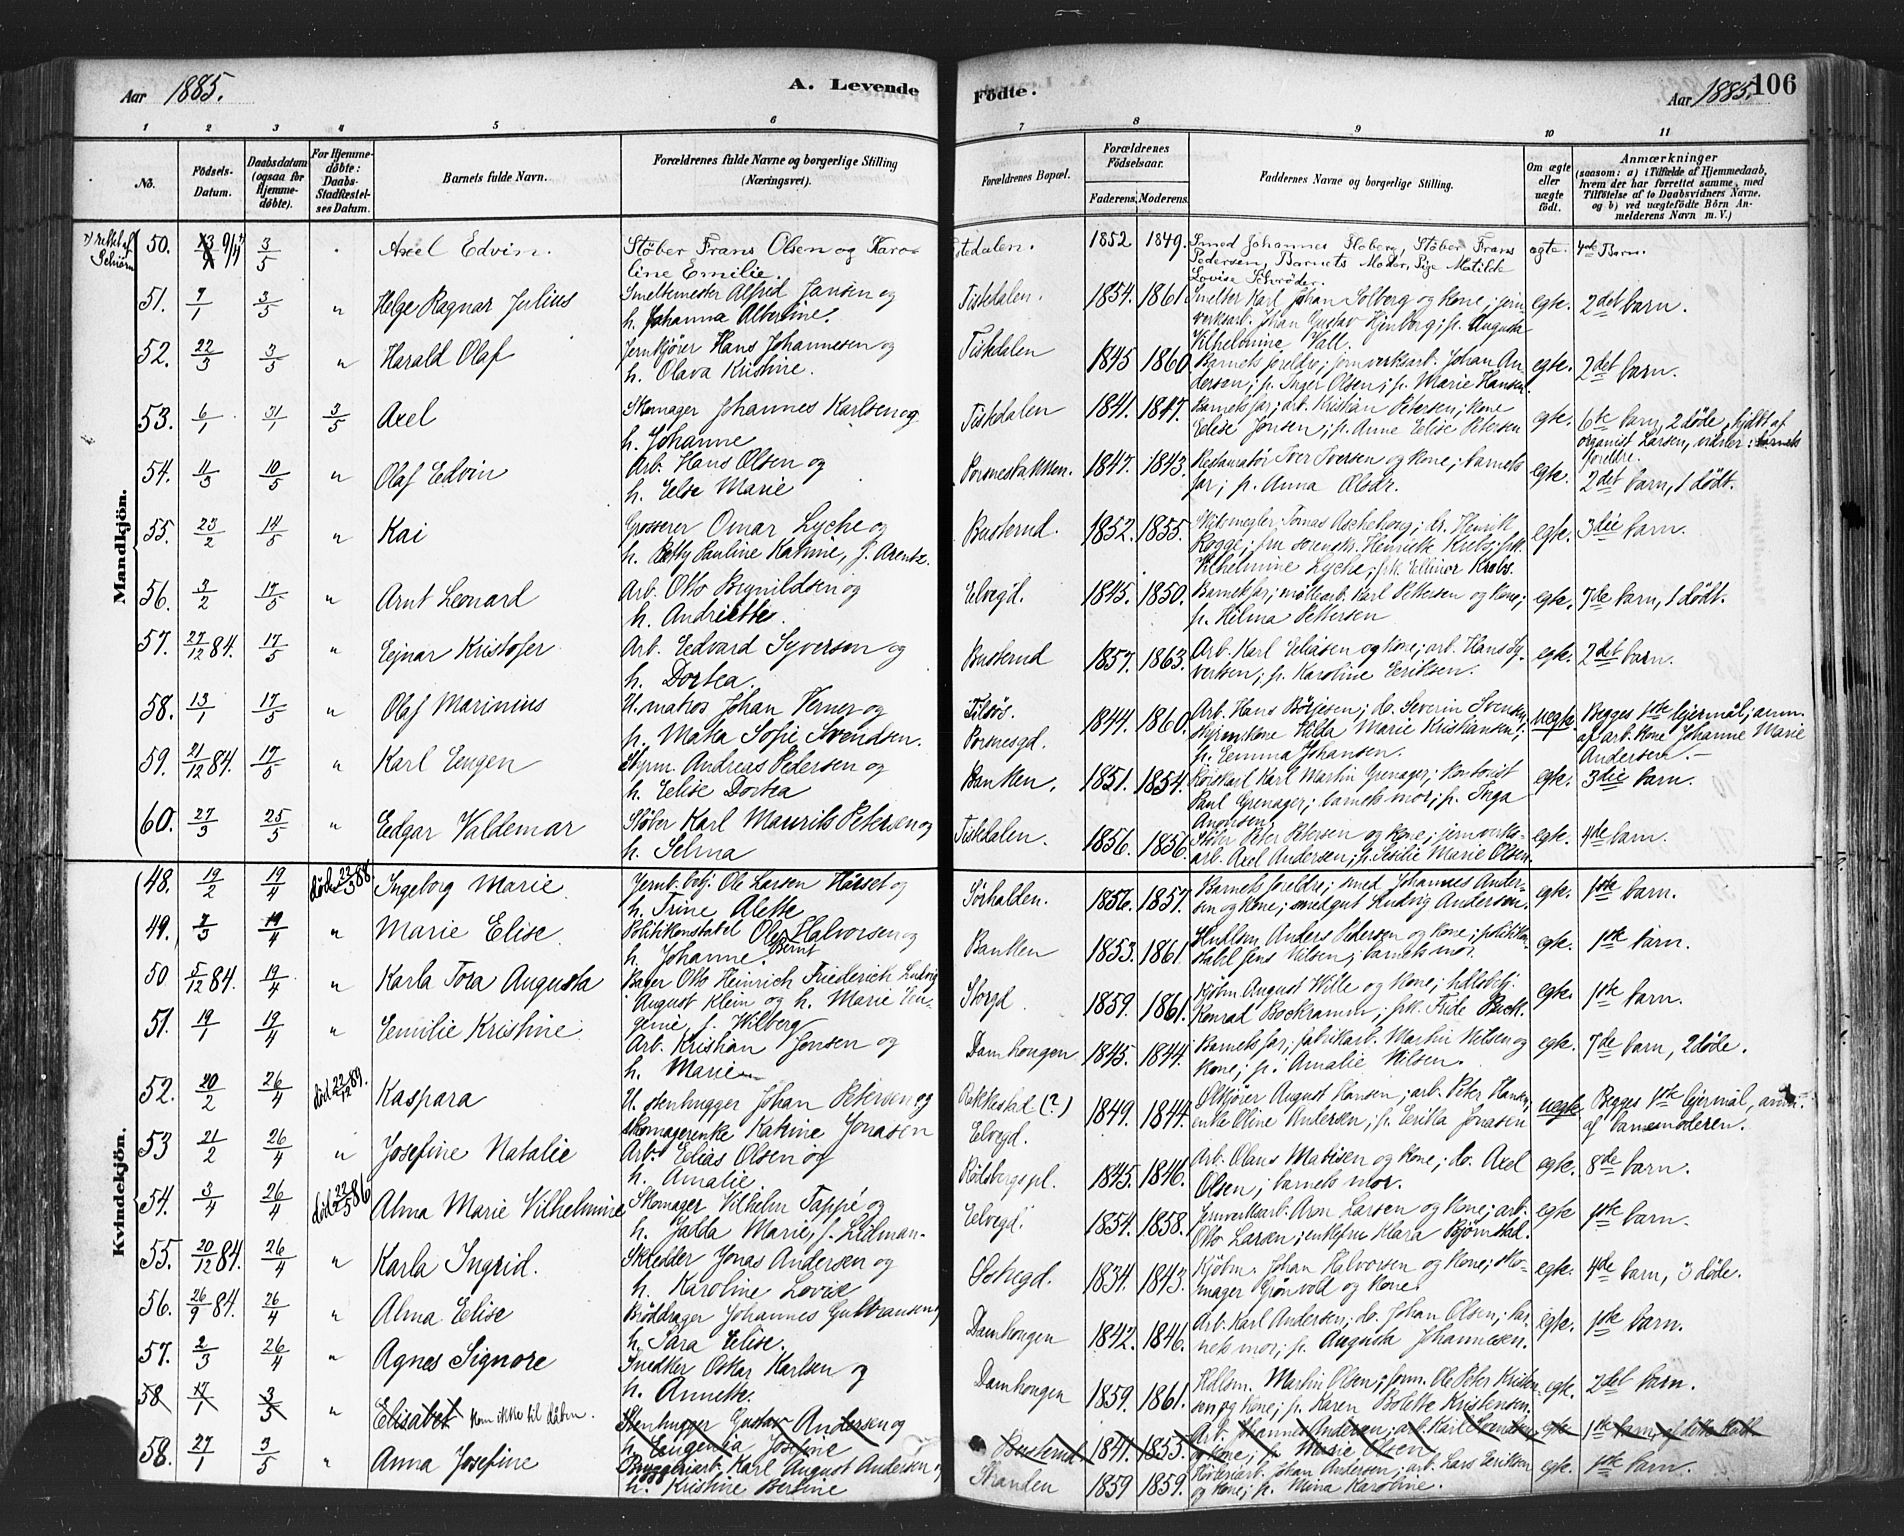 Aar 1885.
A. Levende
Födte.
Aar 1885.
106
1 2 3 4 5 6 7 8 9 10 11
No.
Födsels-Datum.
Daabsdatum (ogsaa for Hjemmedöbte).
For Hjemmedöbte: Daabs-Stadfæstelses Datum.
Barnets fulde Navn.
Forældrenes fulde Navne og borgerlige Stilling (Næringsvei).
Forældrenes Bopæl.
Forældrenes Födselsaar.
Faderens. Moderens.
Faddernes Navne og borgerlige Stilling.
Om ægte eller uægte födt.
Anmærkninger
(saasom: a) i Tilfælde af Hjemmedaab, hvem der har forrettet samme, med Tilföielse af to Daabsvidners Navne. og b) ved uægtefödte Börn Anmelderens Navn m. V.)
Mandkjön.
50. 3/5 Axel Edvin. Støber Frans Olsen og Karoline Emilie. 1852 1849. Smed Johannes Floberg, Støber Frans Pedersen, Barnets Moder, Pige Matilde Lovise Schrøder. ægte. 4de Barn.
51. 7/1 3/5 " Helge Ragnar Julius Smeltemester Alfred Jansen og h. Johanna Albertine. Tistedalen. 1854. 1861 Smelter Karl Johan Solberg og kone; jernverksarb. Johan Gustav Hjenborg; p. Augusta Vilhelmine Vall. egte. 2det barn.
52. 22/3 3/5 " Harald Olaf Jernkjører Hans Johannesen og h. Olava Kristine. Tistedalen 1845 1860 Barnets foreldre; jernverksarb. Johan Andersen; p. Inger Olsen; p. Marie Hansen. egte. 2det barn.
53. 6/1 31/1 3/5 Axel Skomager Johannes Karlsen og h. Johanne Tistedalen 1841. 1847. Barnets far; arb. Kristian Petersen; kone Elise Jonsen; p. Anne Elise Petersen egte. 6te barn, 2 døde, hjdbt af organist Larsen, vidner: barnets foreldre.
54. 11/3 10/5 " Olaf Edvin Arb. Hans Olsen og h. Else Marie 1847. 1843. Restauratør Iver Iversen og kone; barnets far; p. Anna Olsdr. egte. 2det barn, 1 dødt.
55. 23/2 14/5 " Kai Grosserer Omar Lyche og h. Betty Pauline Katrine, f. Arentz. Busterud. 1852. 1855. Tomas Aschehoug; dr. Henrik Henriette Krebs; frk. Vilhelmine Lyche; frk. Elinor Krebs. egte. 3die barn.
56. 3/2 17/5 " Arnt Leonard Arb. Otto Brynildsen og h. Andriette. Elvegd. 1845. 1850. Barnets far; møllearb. Karl Pettersen og kone; p. Hilma Pettersen egte. 7de barn, 1 dødt.
57. 27/12 84. 17/5 " Ejnar Kristofer Arb. Edvard Syversen og h. Dortea. Busterud 1857. 1863. Arb. Karl Eliasen og kone; arb. Hans Syversen; p. Karoline Eriksen. egte. 2det barn.
58. 13/1 17/5 " Olaf Marinius U. matros Johan Verner og p. Maka Sofie Svendsen. 1844. 1860. Arb. Hans Børjesen; do. Severin Svensen; Hilda Marie Kristiansen; p. Emma Johansen. uegte. Begges 1ste lejermål; anm. af arb. kone Johanne Marie Andersen.
59. 21/12 84. 17/5 " Karl Eugen Styrm. Andreas Pedersen og h. Elise Dortea Banken. 1851. 1854. Karl Martin Grenager; kontorist Paul Grenager; barnets mor; p. Inga Andersen. egte. 3die barn.
60. 27/3 25/5 " Edgar Valdemar Støber Karl Maurits Petersen og h. Selma Tistedalen. 1856. 1856. Støber Peter Petersen og kone; jernverksarb. Axel Andersen; p. Sesilie Marie Olsen. egte. 4de barn.
Kvindekjön.
48. 19/2 19/4 død 22/3 88. Ingeborg Marie Jernb.betj. Ole Larsen Hårset og h. Trine Alette Sørhalden. 1856. 1857. Barnets foreldre; smed Johannes Andersen og kone; smedgut Ludvig Andersen. egte. 1ste barn.
49. 7/3 19/4 " Marie Elise. Politikonstabel Ole Bernt Halvorsen og h. Johanne. Banken 1853. 1861. Anders Pedersen og kone; politikonstabel Jens Nilsen; barnets mor. egte. 1ste barn.
50 5/12 84. 19/4 " Karla Tora Augusta Bager Otto Heinrich Friederich Ludvig August Klein og h. Marie Eugenie, f. Wilberg Storgd. 1859. 1861. Kjøbm. August Wille og kone; hdlsbetj. Konrad Bockramm; frk. Fride Buck. egte. 1ste barn.
51. 19/1 19/4 " Emilie Kristine Arb. Kristian Jonsen og h. Marie Damhougen 1845. 1844. Barnets far; fabrikarb. Martin Nilsen og kone; p. Amalie Nilsen. egte. 7de barn, 2 døde.
52. 20/2 26/4 død 22/12 89. Kaspara U. stenhugger Johan Petersen og skomagerenke Katrine Jonasen Rakkestad (?) Elvegd. 1849. 1844. Ølkjører August Hansen; arb. Peter Hansen; enke Oline Andersen; p. Erika Jonasen uegte Begges 1ste lejermål, anm. af barnemoderen.
53 21/2 26/4 " Josefine Natalie Arb. Elias Olsen og h. Amalie Rødsbergspl. 1845. 1846. Arb. Olaus Matisen og kone; do. Axel Olsen; barnets mor. egte. 8de barn.
54. 3/4 26/4 død 22/5 86 Alma Marie Vilhelmine Skomager Vilhelm Tappé og h. Jadda Marie, f. Lidman. Elvegd. 1854. 1858. Jernverksarb. Aron Larsen og kone; arb. Otto Larsen; enkefru Klara Bjørnstad. egte 1ste barn.
55. 20/12 84. 26/4 " Karla Ingrid. Skredder Jonas Andersen og h. Karoline Lovise 1834. 1843. Kjøbm. Johan Halvorsen og kone; skomager Grønvold og kone. egte. 4de barn, 3 døde.
56. 26/9 84. 26/4 " Alma Elise Brøddrager Johannes Gulbransen og h. Sara Elise. Damhougen 1842. 1846. Arb. Karl Andersen; do. Johan Olsen; barnets mor; p. Augusta Johannesen. egte. 1ste barn.
57. 2/3 26/4 " Agnes Signore Snedker Oskar Karlsen og h. Annette. Damhougen 1859. 1861. Martin Olsen; Ole Peter Kristensen og kone; p. Karen Bolette Kristensen. egte. 2det barn.
58 17/1 3/5 " Elisabet kom ikke til dåben. Stenhugger Gustav Andersen og h. Eugenia Josefine Busterud 1841. 1855. Arb. Johannes Andersen; arb. Karl og kone; p. Marie Olsen. egte 1ste barn, af dette kuld
58. 27/1 3/5 " Anna Josefine Bryggeriarb. Karl August Andersen og h. Kristine Bertine Stranden 1859 1859. Johan Andersen; arb. Lars Eriksen og kone; p. Mina Karoline. egte. 1ste barn.